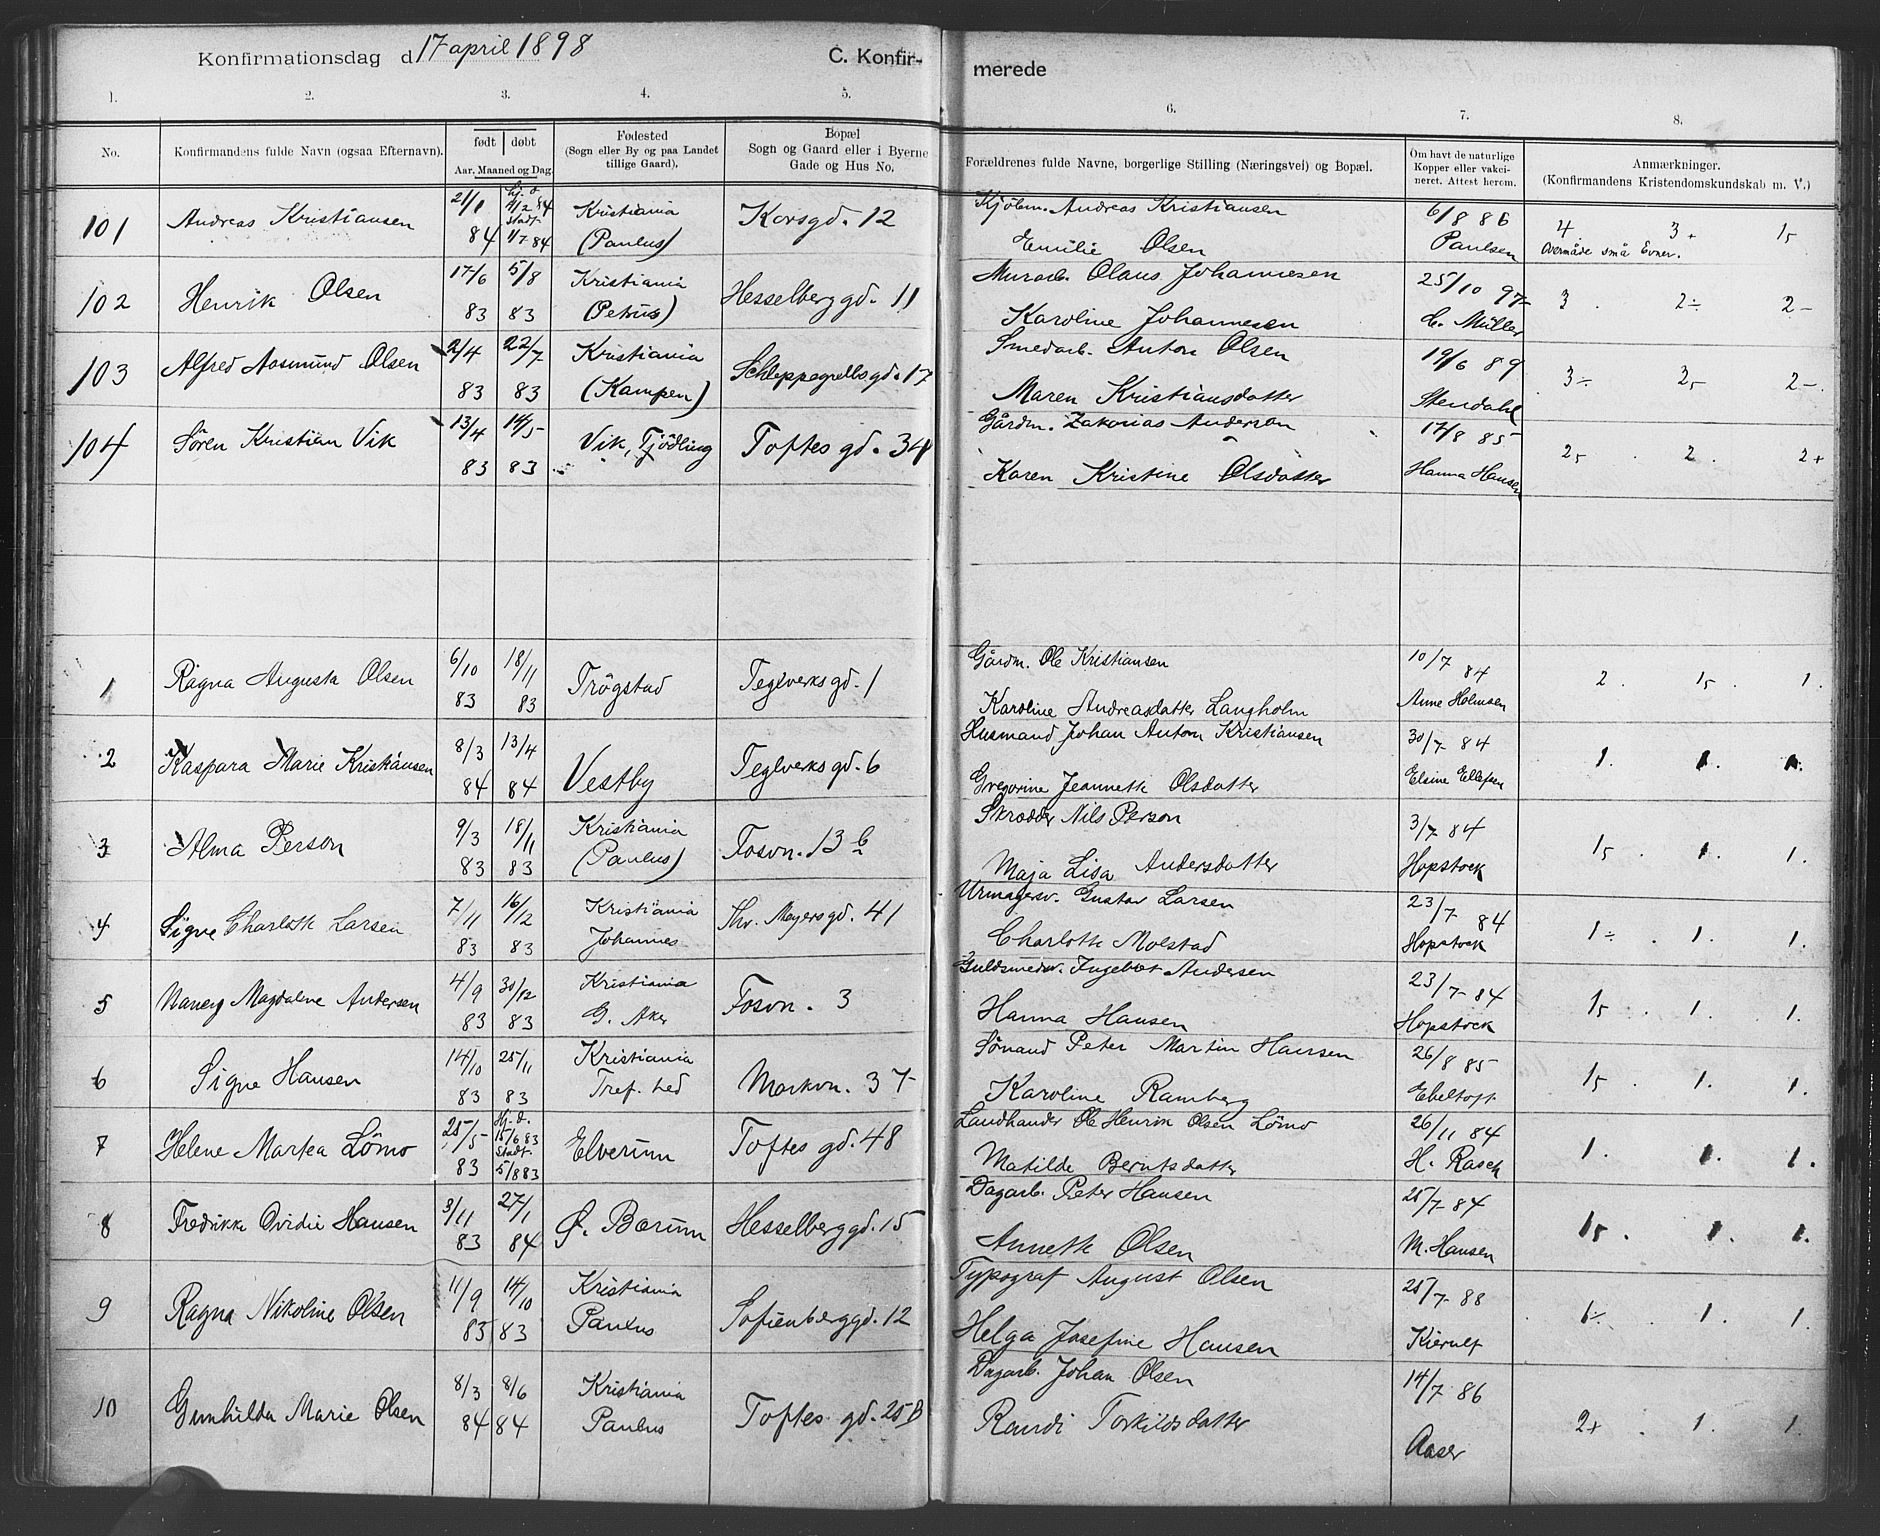 Konfirmationsdag d 17 april 1898 C. Konfir- merede
1. 2. 3. 4. 5. 6. 7. 8.
No. Konfirmandens fulde Navn (ogsaa Efternavn). født døbt Aar, Maaned og Dag. Fødested (Sogn eller By og paa Landet tillige Gaard). Bopæl Sogn og Gaard eller i Byerne Gade og Hus No. Forældrenes fulde Navne, borgerlige Stilling (Næringsvei) og Bopæl. Om havt de naturlige Kopper eller vakcineret. Attest herom. Anmærkninger. (Konfirmandens Kristendomskundskab m. V.)
101 Andreas Kristiansen 21/1 84 hj. d. 11/2 84 Stadf. 1/7 84 Kristiania (Paulus) Korsgd. 12 Kjöbm. Andreas Kristiansen 6/8 86 4 3+ 15
Emilie Olsen Paulsen Overmåde små Evner.
102 Henrik Olsen 17/6 83 5/8 83 Kristiania (Petrus) Hesselberggd. 11 Murarb. Olaus Johannesen 25/10 97 3 . 2÷ 2–
Karoline Johannesen C. Müller
103 Alfred Aasmund Olsen 2/4 83 22/7 83 Kristiania (Kampen) Schleppegrellsgd. 17 Smedarb. Anton Olsen 19/6 89 3÷ 25 2–.
Maren Kristiansdatter Stendahl
104 Sören Kristian Vik 13/4 83 14/5 83 Vik, Tjödling Toftes gd. 34 Gårdm. Zakarias Anderson 17/8 85 25 . 2 . 2+
Karen Kristine Olsdatter Hanna Hansen
1 Ragna Augusta Olsen 6/10 83 18/11 83 Trögstad Teglverksgd. 1 Gårdm. Ole Kristiansen 10/7 84 2 . 15 . 1.
Karoline Andreasdatter Langholm Anne Holmsen
2 Kaspara Marie Kristiansen 8/3 84 13/4 84 Vestby Teglverksgd. 6 Husmand Johan Anton Kristiansen 30/7 84 1. 1. 1.
Gregorine Jeannette Olsdatter Elsine Ellefsen
3 Alma Person 9/3 83 18/11 83 Kristiania (Paulus) Fosvn. 13 b Skrædder Nils Person 3/7 84 15 . 1. 1.
Maja Lisa Andersdatter Hopstock
4 Signe Charlotte Larsen 7/11 83 16/12 83 Kristiania Johannes Thv. Meyersgd. 41 Urmagersv. Gustav Larsen 23/7 84 1÷ . 1. 1.
Charlotte Molstad Hopstock
5 Nancy Magdalene Andersen 4/9 83 30/12 83 Kristiania G. Aker Fosvn. 3 Guldsmedsv. Ingebret Andersen 23/7 84 15 . 1. 1.
Hanna Hansen Hopstock
6 Signe Hansen 14/10 83 25/11 83 Kristiania Tref.hed Markvn. 37 Sömand Peter Martin Hansen 26/8 85 15 . 1. 1.
Karoline Ramberg Ebeltoft
7 Helene Martea Lömo 25/5 83 Hj. d. 15/6 83 Stadf. 5/8 83 Elverum Toftes gd. 48 Landhandr. Ole Henrik Olsen Lömo 26/11 84 1. 1. 1.
Matilde Berntsdatter H. Rasch
8 Fredrikke Ovidie Hansen 3/11 83 27/1 84 Ø. Bærum Hesselberggd. 15 Dagarb. Peter Hansen 25/7 84 15 . 1. 1.
Annette Olsen M. Hansen
9 Ragna Nikoline Olsen 11/9 83 14/10 83 Kristiania Paulus Sofienberggd. 12 Typograf August Olsen 25/7 88 1÷ . 1 . 1.
Helga Josefine Hansen Kierulf
10 Gunhilda Marie Olsen 8/3 84 8/6 84 Kristiania Paulus Toftes gd. 25 B Dagarb. Johan Olsen 14/7 86 2+ . 1. 1.
Randi Torkildsdatter Aaser